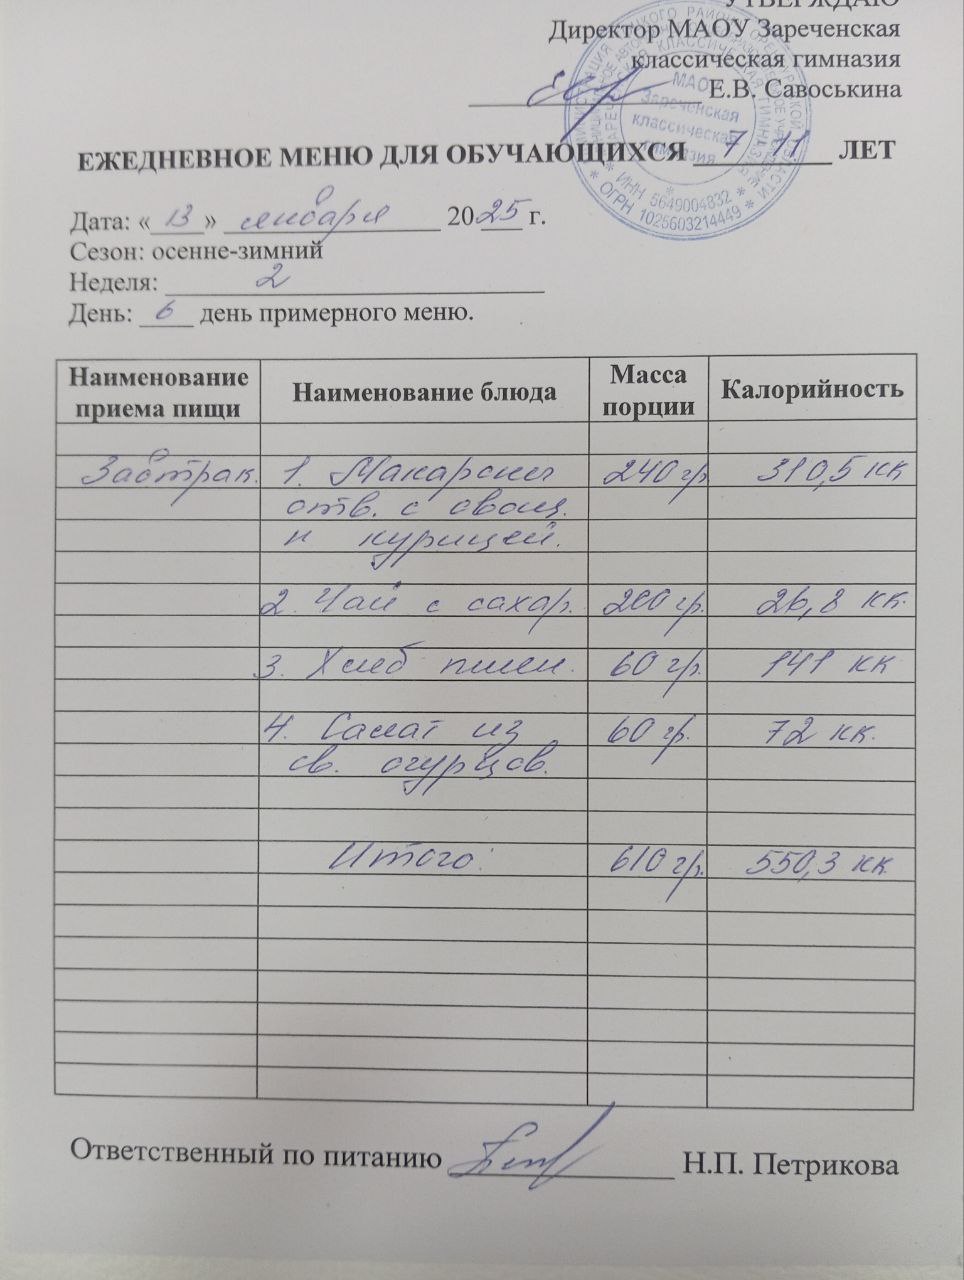 УТВЕРЖДАЮ
Директор МАОУ Зареченская
классическая гимназия
Е.В. Савоськина
МАОУ
Зареченская
классическая
гимназия
* ИНН 5649004832 *
* ОГРН 1025603214449 *
ЕЖЕДНЕВНОЕ МЕНЮ ДЛЯ ОБУЧАЮЩИХСЯ 7 11 ЛЕТ
Дата: «13» января 2025 г.
Сезон: осенне-зимний
Неделя: 2
День: 6 день примерного меню.
Наименование приема пищи Наименование блюда Масса порции Калорийность
Завтрак. 1. Макароны 240 гр. 310,5 кк
отв. с овощ.
и курицей.
2. Чай с сахар. 200 гр. 26,8 кк.
3. Хлеб пшен. 60 гр. 141 кк
4. Салат из 60 гр. 72 кк.
св. огурцов.
Итого: 610 гр. 550,3 кк
Ответственный по питанию Н.П. Петрикова